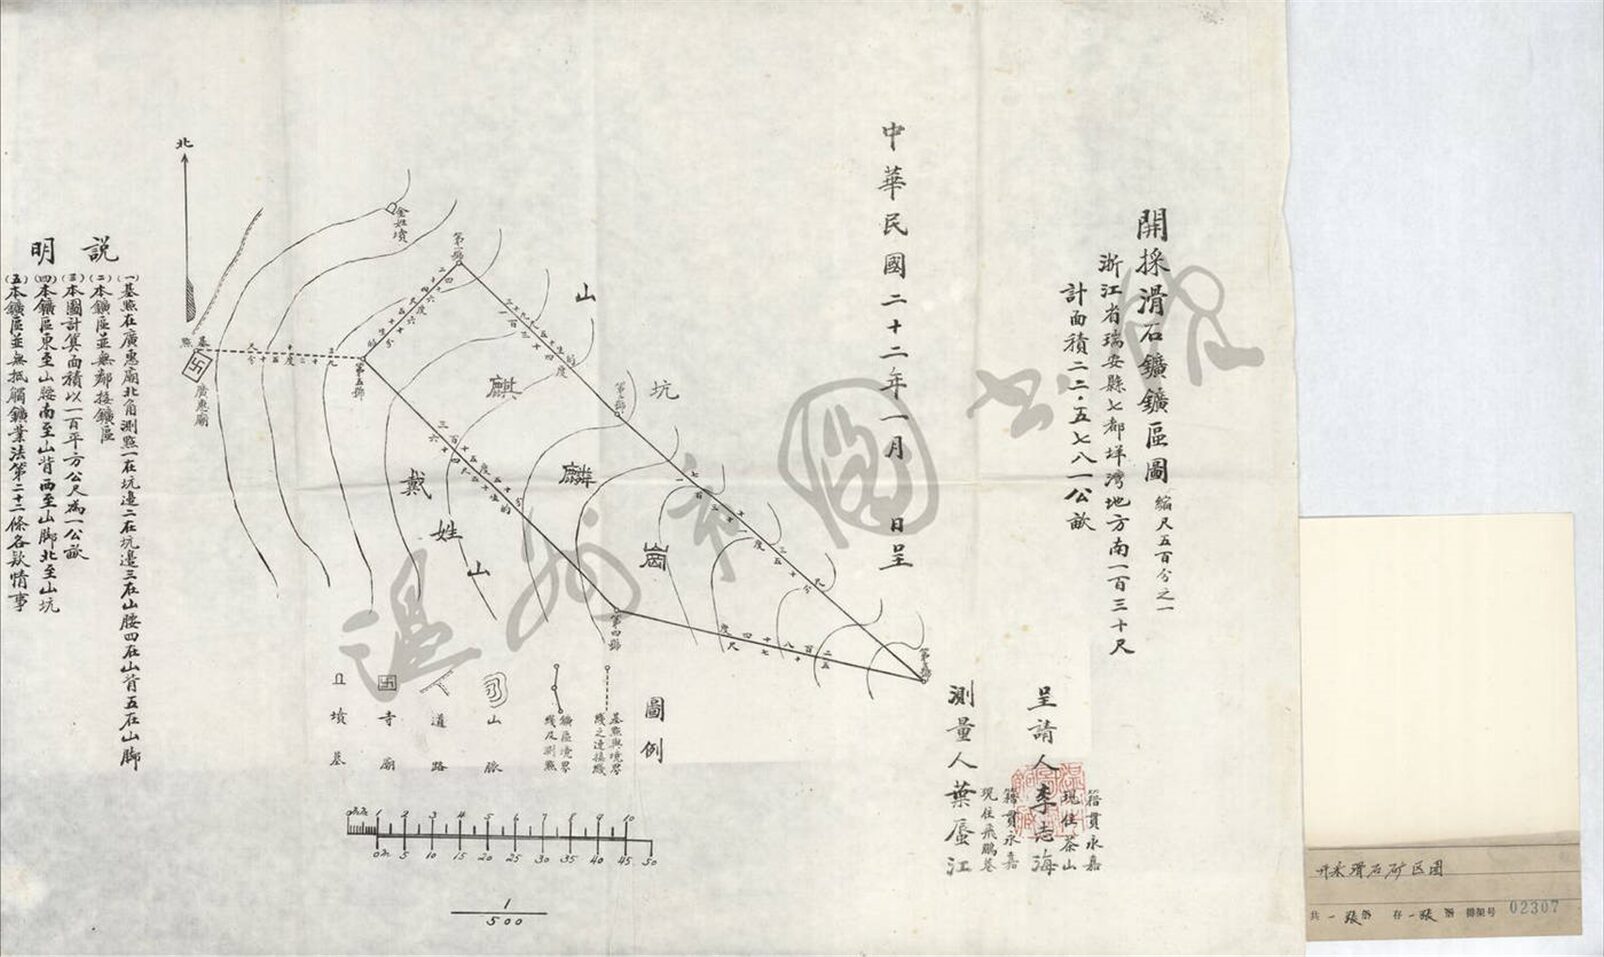 開採滑石鑛鑛區圖 縮尺五百分之一
浙江省瑞安縣七都垟灣地方南一百三十尺
計面積二二·五七八一公畝
中華民國二十二年一月 日呈
呈請人李志海
籍貫永嘉
現住茶山
測量人葉蜃江
籍貫永嘉
現住飛鵬巷
北
金姓墳
第一號
山
坑
第二號
麒
麟
崗
第五號
基點
廣惠廟
戴
姓
山
第四號
圖例
基點與境界
綫之連接綫
鑛區境界
綫及測點
山脈
道路
寺廟
墳墓
說明
(一)基點在廣惠廟北角測點一在坑邊二在坑邊三在山腰四在山背五在山脚
(二)本鑛區並無鄰接鑛區
(三)本圖計算面積以一百平方公尺為一公畝
(四)本鑛區東至山腰南至山背西至山脚北至山坑
(五)本鑛區並無抵觸鑛業法第二十二條各款情事
1 2 3 4 5 6 7 8 9 10
0 5 10 15 20 25 30 35 40 45 50
1
500
溫州市圖書館
开采滑石矿区图
共一张 存一张 排架号 02307